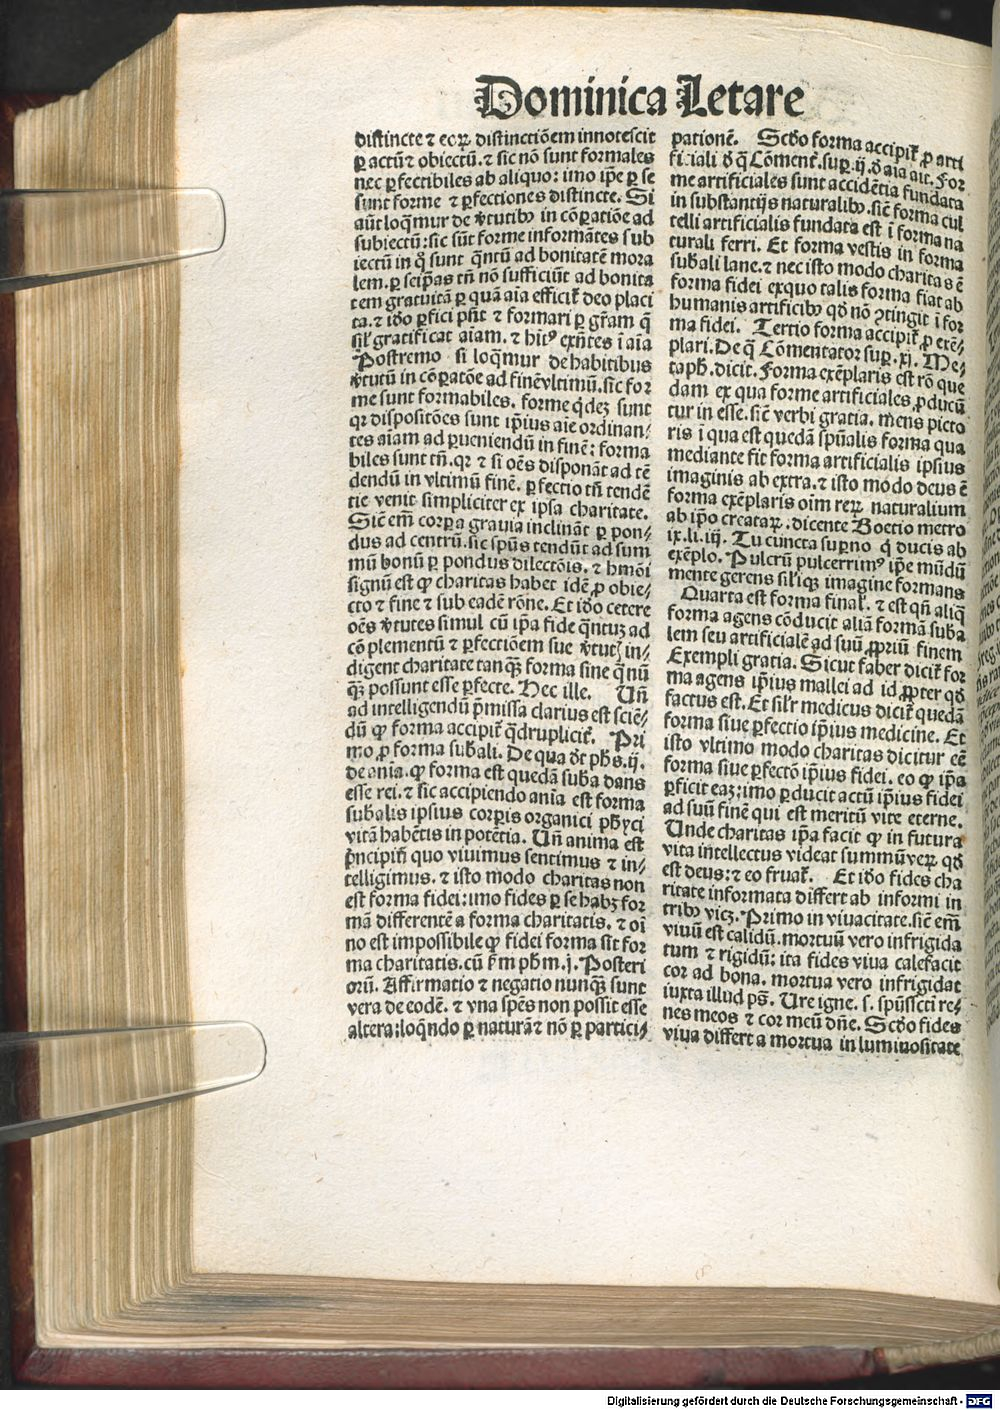 Dominica Letare
distincte ⁊ eoꝝ distinctiõem innotescit
ꝑ actũ ⁊ obiectũ. ⁊ sic nõ sunt formales
nec ꝑfectibiles ab aliquo: imo ip̃e ꝑ se
sunt forme ⁊ ꝑfectiones distincte. Si
aũt loq̃mur de ṽtutibꝰ in cõꝑatiõe ad
subiectũ: sic sũt forme informãtes sub
iectũ in q̃ sunt q̃ntũ ad bonitatẽ mora
lem. ꝑ seip̃as tñ nõ sufficiũt ad bonita
tem gratuitã ꝑ quã aĩa efficit̃ deo placi
ta. ⁊ iõo ꝑfici pñt ⁊ formari ꝑ gr̃am q̃
sil̕ gratificat aĩam. ⁊ hit̃ꝰ exñtes ĩ aĩa
Postremo si loq̃mur de habitibus
ṽtutũ in cõꝑatõe ad finẽ vltimũ. sic for
me sunt formabiles. forme q̃dez sunt
qꝛ dispositões sunt ip̃ius aĩe ordinan⸗
tes aĩam ad ꝑueniendũ in finẽ: forma
biles sunt tñ. qꝛ ⁊ si oẽs disponãt ad tẽ
dendũ in vltimũ finẽ. ꝑfectio tñ tendẽ
tie venit simpliciter ex ipsa charitate.
Sicẽ em̃ corꝑa grauia inclinãt ꝑ pon⸗
dus ad centrũ. sic spũs tendũt ad sum
mũ bonũ ꝑ pondus dilectõis. ⁊ hmõi
signũ est ꝙ charitas habet idẽ ꝓ obie⸗
cto ⁊ fine ⁊ sub eadẽ rõne. Et iõo cetere
oẽs ṽtutes simul cũ ip̃a fide q̃ntuz ad
cõplementũ ⁊ ꝑfectiõem sue ṽtut̃ in⸗
digent charitate tanq̃ꝫ forma sine q̃ nũ
q̃ꝫ possunt esse ꝑfecte. Hec ille. Uñ
ad intelligendũ p̃missa clarius est sciẽ⸗
dũ ꝙ forma accipit̃ q̃druplicit̃. Pri
mo ꝓ forma sub̃ali. De qua ð̃t ph̃s. ij.
de anĩa. ꝙ forma est quedã sub̃a dans
esse rei. ⁊ sic accipiendo anĩa est forma
sub̃alis ipsius corꝑis organici phỹci
vitã habẽtis in potẽtia. Uñ anima est
p̃ncipiũ quo viuimus sentimus ⁊ in⸗
telligimus. ⁊ isto modo charitas non
est forma fidei: imo fides ꝑ se habꝫ for
mã differentẽ a forma charitatis. ⁊ oĩ
no est impossibile ꝙ fidei forma sit for
ma charitatis. cũ ẽm ph̃m. j. Posteri
orũ. Affirmatio ⁊ negatio nunq̃ꝫ sunt
vera de eodẽ. ⁊ vna spẽs non possit esse
altera: loq̃ndo ꝑ naturã ⁊ nõ ꝑ partici⸗
pationẽ. Scðo forma accipit̃ ꝓ arti
ficiali ð q̃ Cõment̃. suꝑ. ij. ð aĩa ait. For
me artificiales sunt accidẽtia fundata
in substantijs naturalibꝰ. sicẽ forma cul
telli artificialis fundata est ĩ forma na
turali ferri. Et forma vestis in forma
sub̃ali lane. ⁊ nec isto modo charitas ẽ
forma fidei exquo talis forma fiat ab
humanis artificibꝰ qð nõ ꝯtingit ĩ for
ma fidei. Tertio forma accipit̃ ꝓ exẽ⸗
plari. De q̃ Cõmentator suꝑ. xj. Me⸗
taph̃. dicit. Forma exẽplaris est rõ que
dam ex qua forme artificiales ꝓducũ
tur in esse. sicẽ verbi gratia. mens picto
ris ĩ qua est quedã spũalis forma qua
mediante fit forma artificialis ipsius
imaginis ab extra. ⁊ isto modo deus ẽ
forma exẽplaris oĩm reꝝ naturalium
ab ip̃o creataꝝ. dicente Boetio metro
ix. li. iij. Tu cuncta suꝑno q̃ ducis ab
exẽplo. Pulcrũ pulcerrimꝰ ip̃e mũdũ
mente gerens sil̕iqꝫ imagine formans
Quarta est forma final̕. ⁊ est qñ aliq̃
forma agens cõducit aliã formã suba
lem seu artificialẽ ad suũ ꝓpriũ finem
Exempli gratia. Sicut faber dicit̃ for
ma agens ip̃ius mallei ad id ꝓpter qð
factus est. Et sil̕r medicus dicit̃ quedã
forma siue ꝑfectio ip̃ius medicine. Et
isto vltimo modo charitas dicitur eẽ
forma siue ꝑfectõ ip̃ius fidei. eo ꝙ ip̃a
ꝑficit eaꝫ: imo ꝑducit actũ ip̃ius fidei
ad suũ finẽ qui est meritũ vite eterne.
Unde charitas ip̃a facit ꝙ in futura
vita intellectus videat summũ veꝝ qð
est deus: ⁊ eo fruat̃. Et iõo fides cha
ritate informata differt ab informi in
tribꝰ vicꝫ. Primo in viuacitate. sicẽ em̃
viuũ est calidũ. mortuũ vero infrigida
tum ⁊ rigidũ: ita fides viua calefacit
cor ad bona. mortua vero infrigidat
iuxta illud ps̃. Ure igne. s. spũssctĩ re⸗
nes meos ⁊ cor meũ dñe. Scðo fides
viua differt a mortua in luminositate
Digitalisierung gefördert durch die Deutsche Forschungsgemeinschaft - DFG